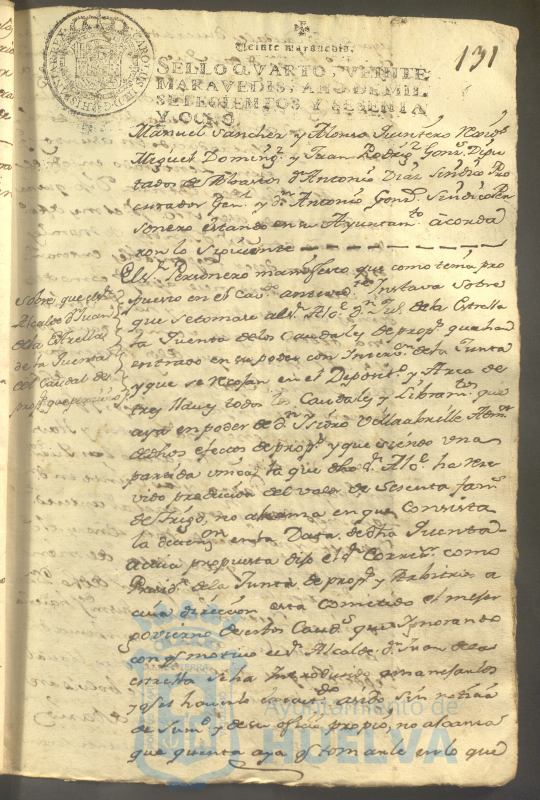 131
Veinte maravedis.
SELLO QVARTO, VEINTE
MARAVEDIS, AÑO DE MIL
SETECIENTOS Y SETENTA
Y OCHO.
Manuel Sanchez y Alonso Quintero
Miguel Doming.z y Juan Rodrig.z Gonz.s Dipu
tados de Abastos d.n Antonio Diaz Sindico Pro
curador Gen.l y d.n Antonio Gonz.s Sindico Per
sonero estando en su Ayuntam.to acorda
ron lo Siguiente
El s.r Personero manifesto que como tenia pro
puesto en el Cav.do instava sobre
que se tomare al s.r Alc.e d.n Ju.n de la Estrella
la Quenta de los Caudales de prop.s que han
entrado en su poder con Interv.on de la Junta
y que se en el Deposito y Arca de
tres llaves todos los Caudales y Libram.tos que
aya en poder de d.n Isidro Villaabrille
dichos efectos de prop.s y que siendo una
partida unica la que dho s.r Alc.e ha reci
vido del valor de Sesenta fan.s
de trigo, no alcanza en que consista
la en la Data de dha Quenta
acuia propuesta dijo el s.r Correx.or como
Presid.te de la Junta de prop.s y Arbitrios a
cuia direccion esta cometido el mejor
govierno de estos Caud.s que ignorando
con q.e motivo el s.r Alcalde d.n Juan de la
estrella se ha Introducido a manejarlos
sin noticia
de Sum.d y de su oficio propio, no alcanza
que quenta aya q.e tomarle en lo que
Sobre que el s.r
Alcalde d.n Juan
de la Estrella
de la Quenta
del Caudal de
prop.s que
Ayuntamiento de
HUELVA